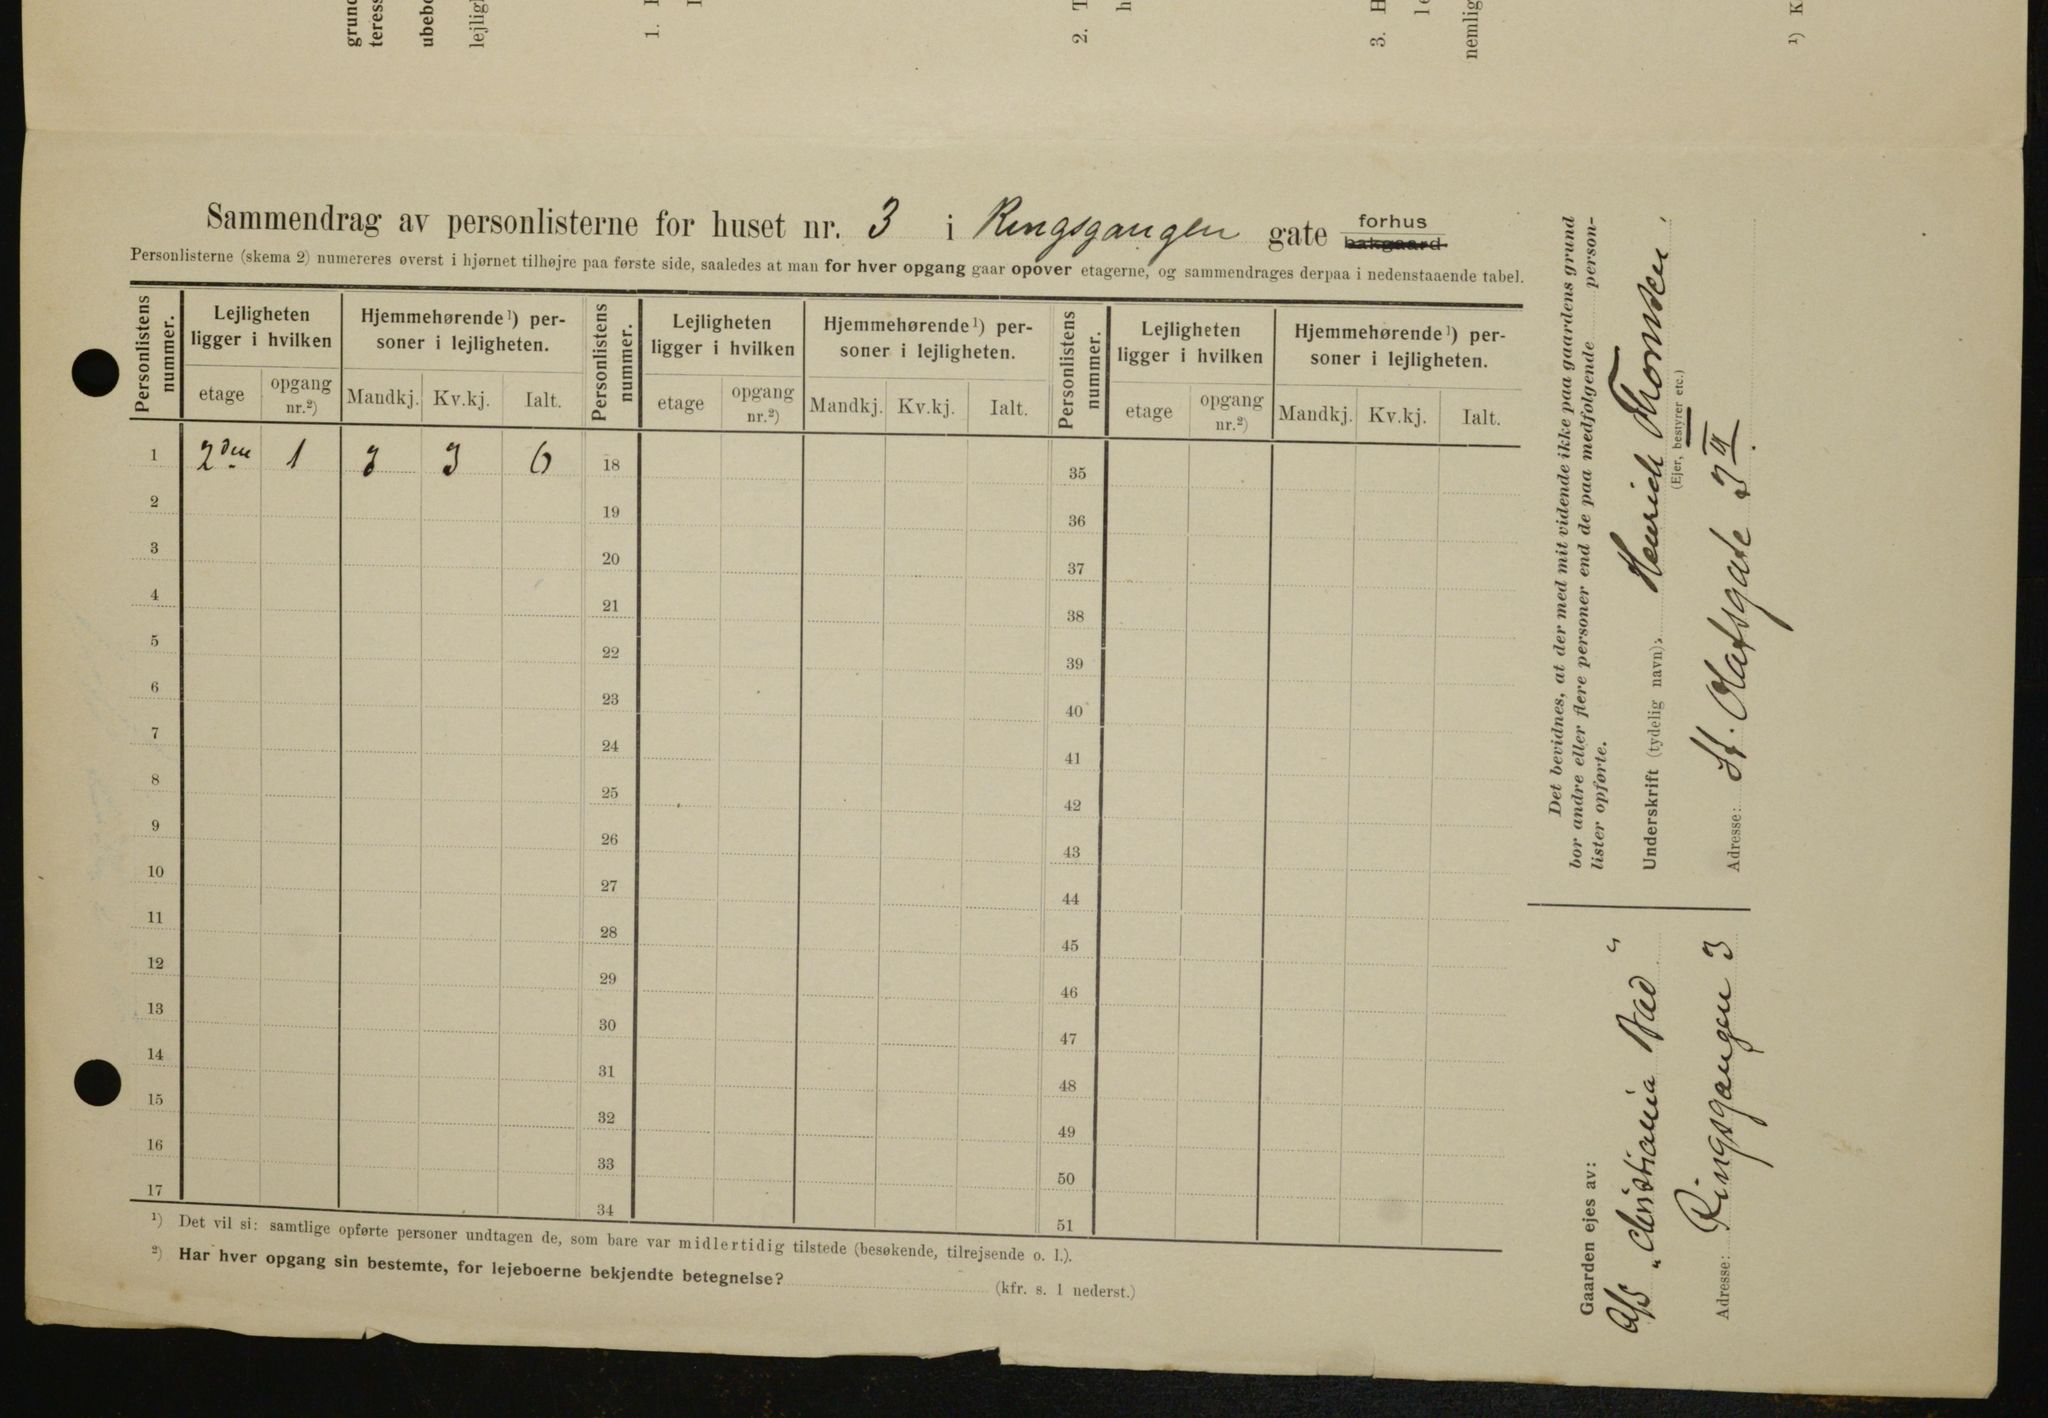 grund
teress
ubebo
lejligh
1.
2. T
h
3. H
le
nemlig
¹) K
Sammendrag av personlisterne for huset nr. 3 i Ringsgangen gate forhus bakgaard
Personlisterne (skema 2) numereres øverst i hjørnet tilhøjre paa første side, saaledes at man for hver opgang gaar opover etagerne, og sammendrages derpaa i nedenstaaende tabel.
Personlistens nummer. Lejligheten ligger i hvilken Hjemmehørende¹) personer i lejligheten. Personlistens nummer. Lejligheten ligger i hvilken Hjemmehørende¹) personer i lejligheten. Personlistens nummer. Lejligheten ligger i hvilken Hjemmehørende¹) personer i lejligheten.
etage opgang nr.²) Mandkj. Kv.kj. Ialt. etage opgang nr.²) Mandkj. Kv.kj. Ialt. etage opgang nr.²) Mandkj. Kv.kj. Ialt.
1 2den 1 3 3 6 18 35
2 19 36
3 20 37
4 21 38
5 22 39
6 23 40
7 24 41
8 25 42
9 26 43
10 27 44
11 28 45
12 29 46
13 30 47
14 31 48
15 32 49
16 33 50
17 34 51
¹) Det vil si: samtlige opførte personer undtagen de, som bare var midlertidig tilstede (besøkende, tilrejsende o. l.).
²) Har hver opgang sin bestemte, for lejeboerne bekjendte betegnelse? (kfr. s. 1 nederst.)
Det bevidnes, at der med mit vidende ikke paa gaardens grund
bor andre eller flere personer end de paa medfølgende person-
lister opførte.
Underskrift (tydelig navn): Henrich Thomsen,
(Ejer, bestyrer etc.)
Adresse: St. Olafsgate 3 III.
Gaarden ejes av:
A/S „Christiania Stad"
Adresse: Ringsgangen 3